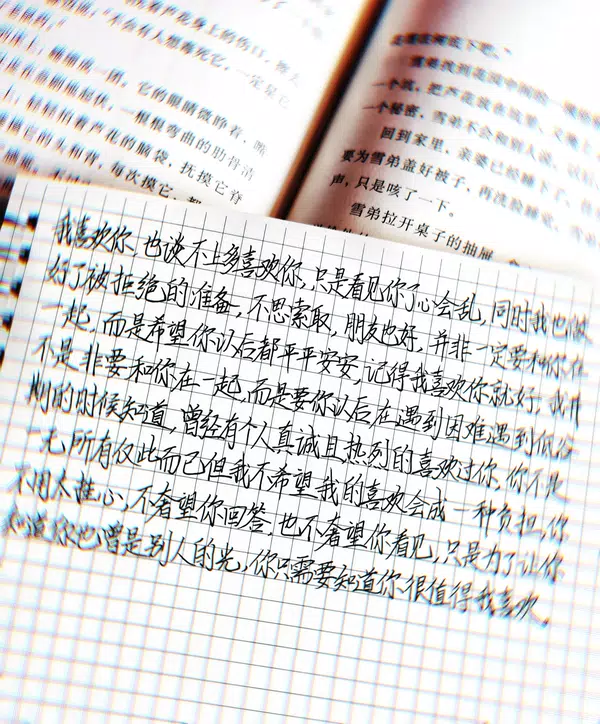 芦花身上的伤口，
"不会有人想毒死它，一定是它
一团。它的眼睛微睁着，嘴
一根根弯曲的肋骨清
芦花的脑袋，抚摸它脊
它的头和背，每次摸它，都
雪弟
个坑，把芦花放在
个秘密，雪弟不会和别人
回到家里，亲婆已经睡下了，
要为雪弟盖好被子，再洗脸睡觉，
声，只是咳了一下。
雪弟拉开桌子的抽屉，拿
我喜欢你，也谈不上多喜欢你，只是看见你了心会乱，同时我也做
好了被拒绝的准备，不思索取，朋友也好，并非一定要和你在
一起，而是希望你以后都平平安安，记得我喜欢你就好，我并
不是非要和你在一起，而是要你以后在遇到困难遇到低谷
期的时候知道，曾经有个人真诚且热烈的喜欢过你，你不是
一无所有仅此而已但我不希望我的喜欢会成一种负担，你
不用太挂心，不奢望你回答，也不奢望你看见，只是为了让你
知道你也曾是别人的光，你只需要知道你很值得我喜欢。